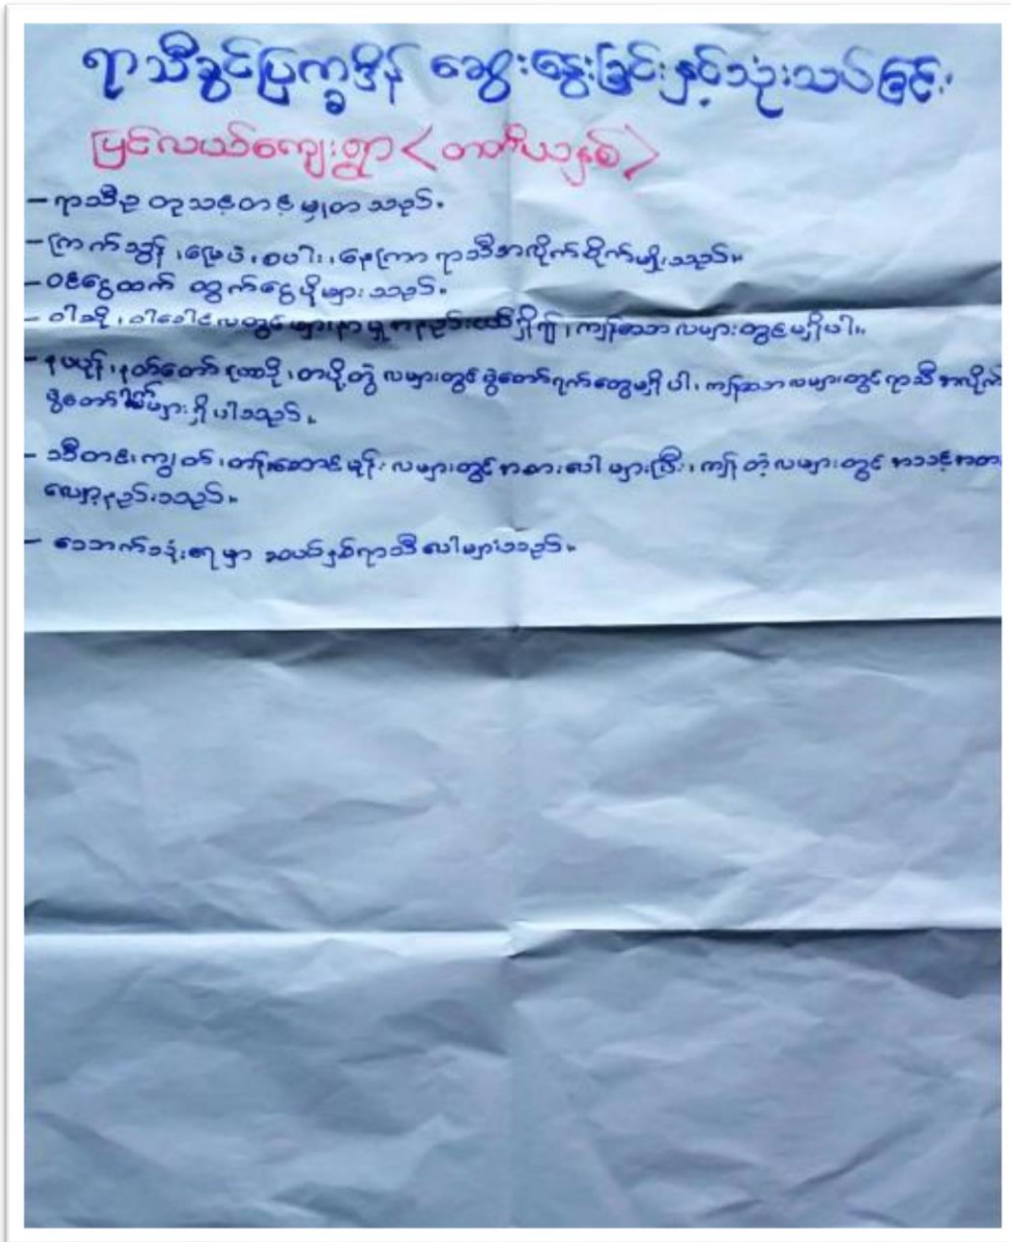 ရာသီခွင်ပြက္ခဒိန် ဆွေးနွေးခြင်းနှင့်သုံးသပ်ခြင်း
ပြင်လယ်ကျေးရွာ < တတိယနှစ် >
- ရာသီဥတုသင့်တင့်မျှတသည်။
- ကြက်သွန်၊ မြေပဲ၊ စပါး၊ နေကြာ ရာသီအလိုက်စိုက်ပျိုးသည်။
- ဝင်ငွေထက် ထွက်ငွေပိုများသည်။
- ဝါဆို၊ ဝါခေါင်လတွင် ဖျားနာမှုအနည်းငယ်ရှိ၍၊ ကျန်သောလများတွင်မရှိပါ။
- နယုန်၊ နတ်တော် တပို့တွဲ လများတွင် ပွဲတော်ရက်တွေမရှိပါ၊ ကျန်သောလများတွင်ရာသီအလိုက်
ပွဲတော် များရှိပါသည်။
- သီတင်းကျွတ်၊ တန်ဆောင်မုန်းလများတွင်အစားပေါများပြီး၊ ကျန်တဲ့လများတွင် အသင့်အတ
လျော့နည်းသည်။
- ဘေးမှာ ဆယ်နှစ်ရာသီပေါများသည်။